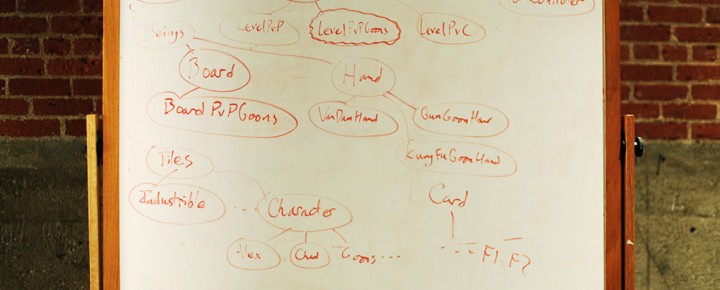 LevelPvP LevelPvPGoons LevelPvC
Beings
Board Hand
BoardPvPGoons VanDamHand GunGoonHand
KungFuGoonHand
Tiles
Industrible ... Character
Card
Alex Chad Goons ...
... F1 F2